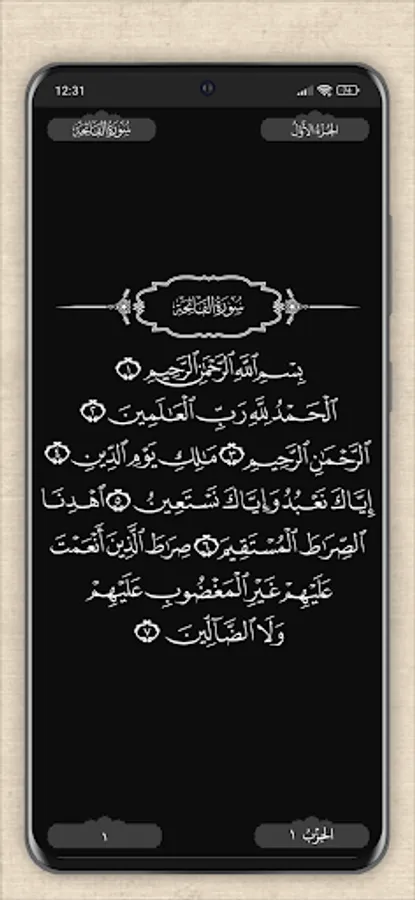 12:31
74
سُورَةُ الفَاتِحَةِ
الجُزءُ الأَوَّلُ
سُورَةُ الفَاتِحَةِ
بِسْمِ اللَّهِ الرَّحْمَٰنِ الرَّحِيمِ ١
الْحَمْدُ لِلَّهِ رَبِّ الْعَالَمِينَ ٢
الرَّحْمَٰنِ الرَّحِيمِ ٣ مَالِكِ يَوْمِ الدِّينِ ٤
إِيَّاكَ نَعْبُدُ وَإِيَّاكَ نَسْتَعِينُ ٥ اهْدِنَا
الصِّرَاطَ الْمُسْتَقِيمَ ٦ صِرَاطَ الَّذِينَ أَنْعَمْتَ
عَلَيْهِمْ غَيْرِ الْمَغْضُوبِ عَلَيْهِمْ
وَلَا الضَّالِّينَ ٧
الحِزْبُ ١
١